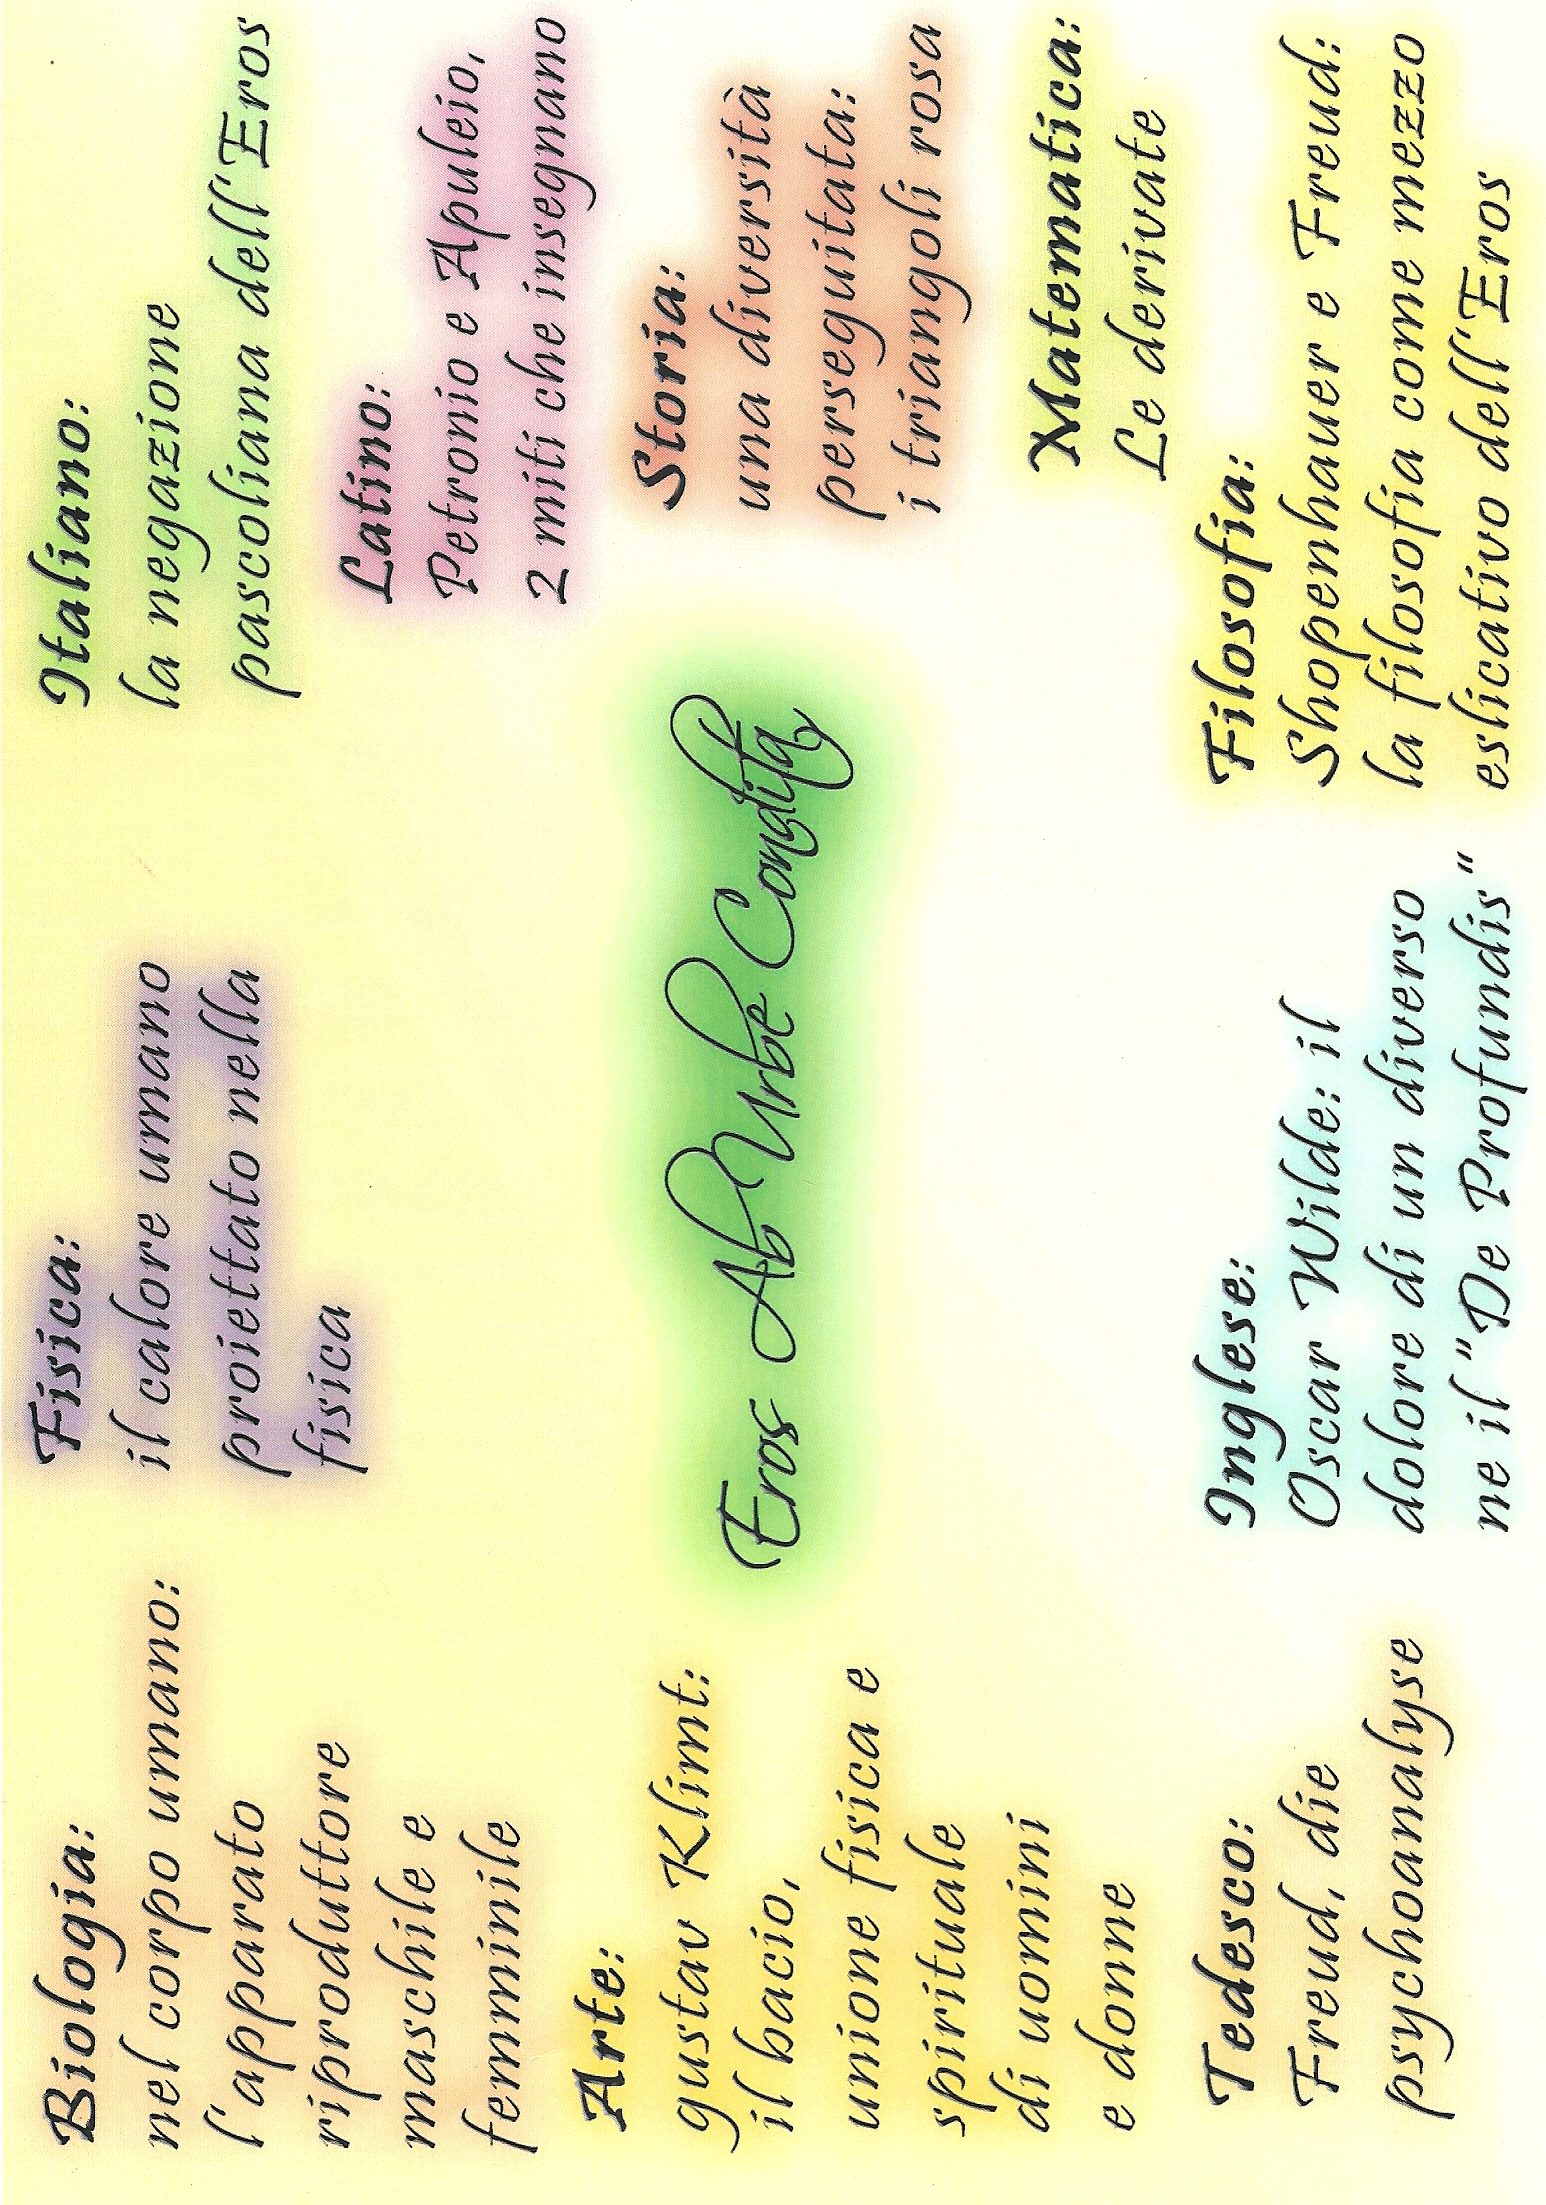 Biologia:
nel corpo umano:
l'apparato
riproduttore
maschile e
femminile
Fisica:
il calore umano
proiettato nella
fisica
Italiano:
la negazione
pascoliana dell'Eros
Latino:
Petronio e Apuleio,
2 miti che insegnano
Arte:
gustav Klimt:
il bacio,
unione fisica e
spirituale
di uomini
e donne
Eros Ab Urbe Condita
Storia:
una diversità
perseguitata:
i triangoli rosa
Matematica:
Le derivate
Tedesco:
Freud, die
psychoanalyse
Inglese:
Oscar Wilde: il
dolore di un diverso
ne il "De Profundis"
Filosofia:
Shopenhauer e Freud:
la filosofia come mezzo
eslicativo dell'Eros